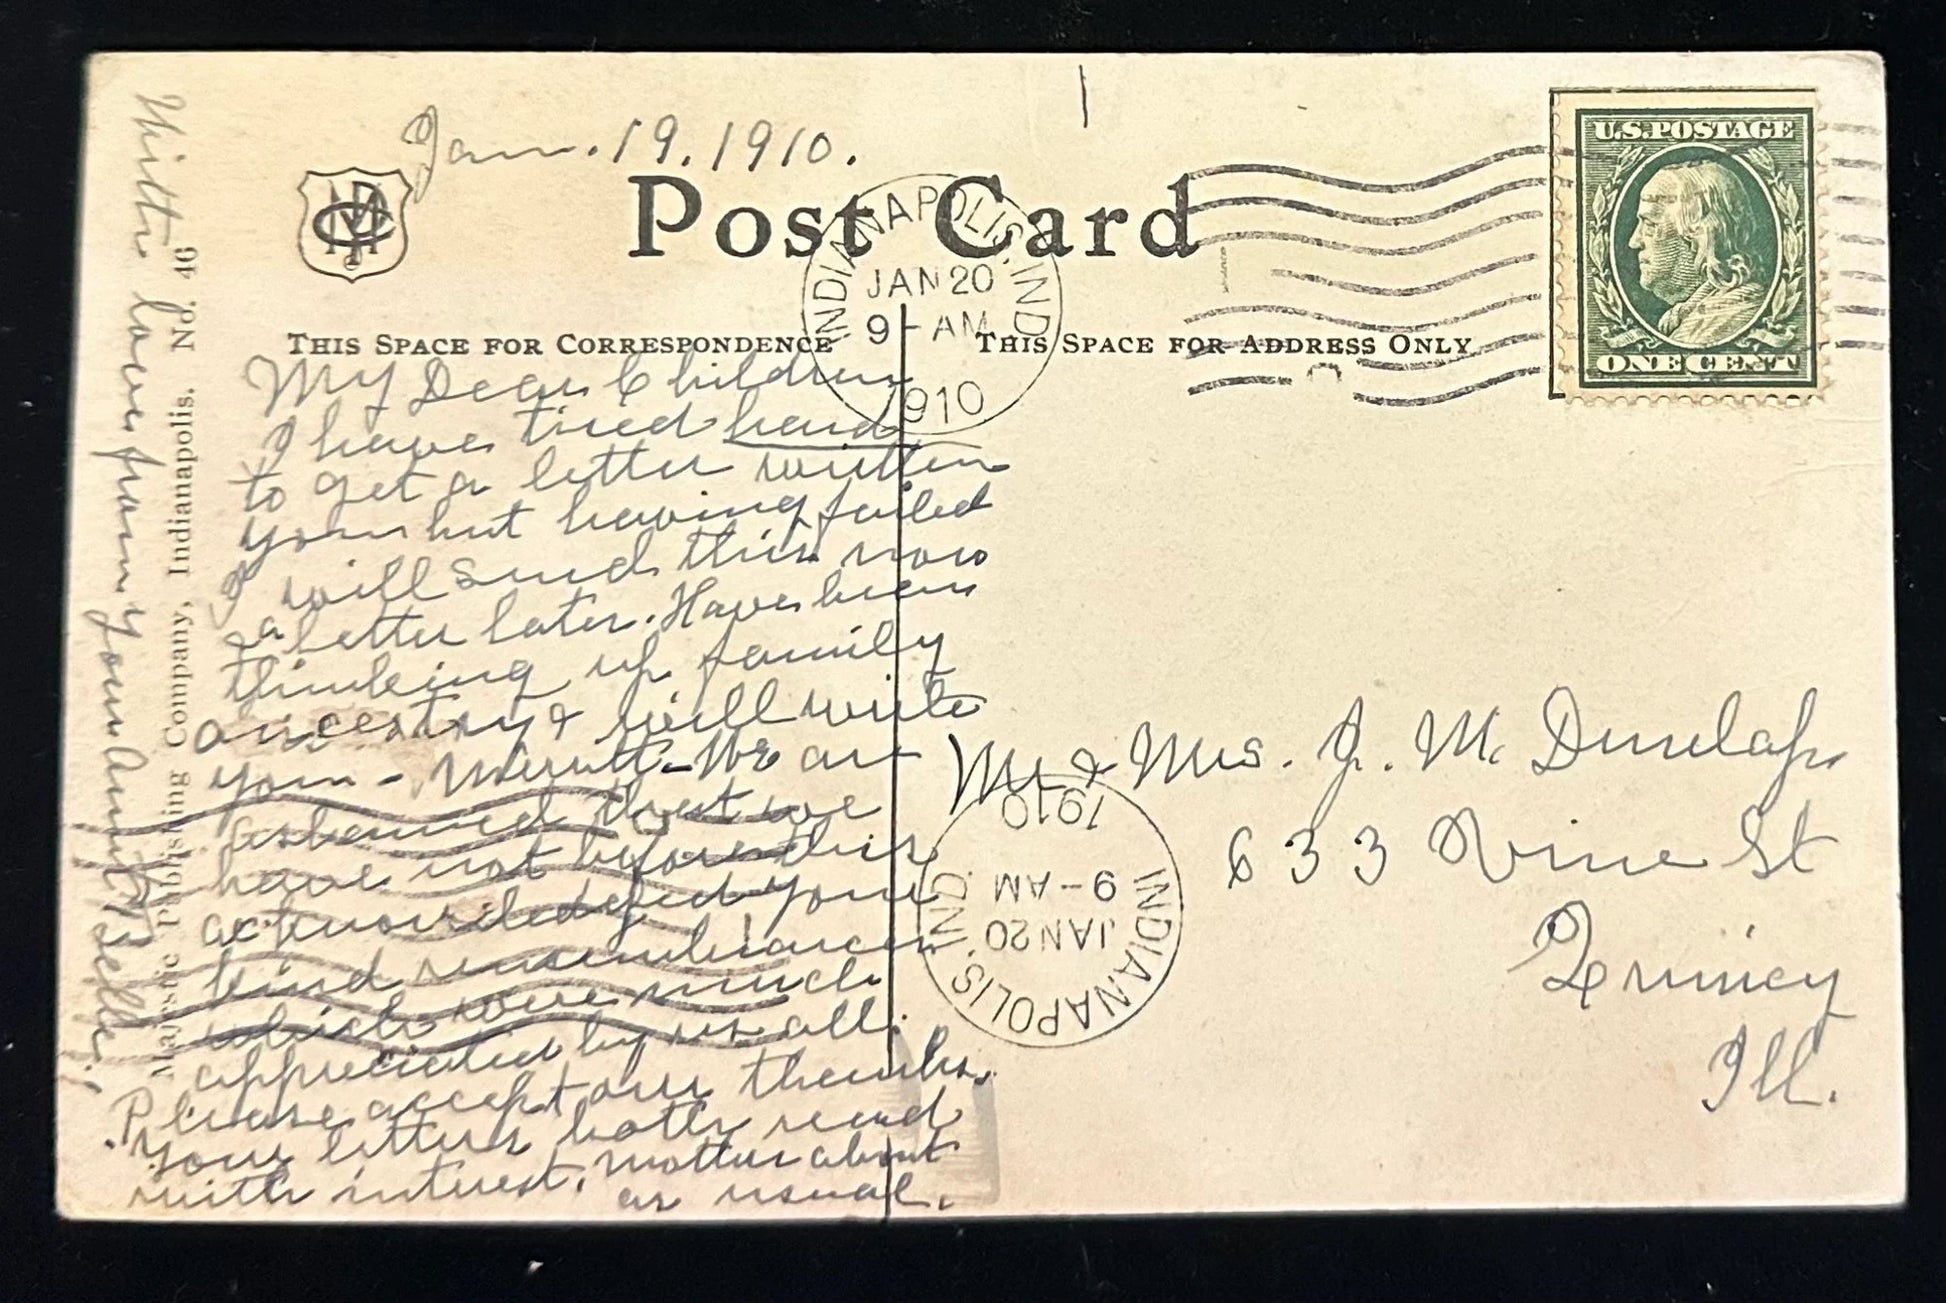 Jan. 19. 1910.
Post Card
U.S. POSTAGE
ONE CENT
INDIANAPOLIS, IND.
JAN 20
9-AM
1910
THIS SPACE FOR CORRESPONDENCE
THIS SPACE FOR ADDRESS ONLY
My Dear Children
I have tried hard
to get a letter written
you but having failed
I will send this now
& a letter later. Have been
thinking up family
ancestry & will write
you - Merritt - We are
ashamed that we
have not before this
acknowledged your
kind remembrances
which were much
appreciated by us all.
Please accept our thanks.
Your letters both read
with interest. Matters about
as usual.
With love from your Aunt Belle.
Majestic Publishing Company, Indianapolis. No. 46
Mr & Mrs. J. M. Dunlap
633 Vine St
Quincy
Ill.
INDIANAPOLIS, IND.
JAN 20
9-AM
1910